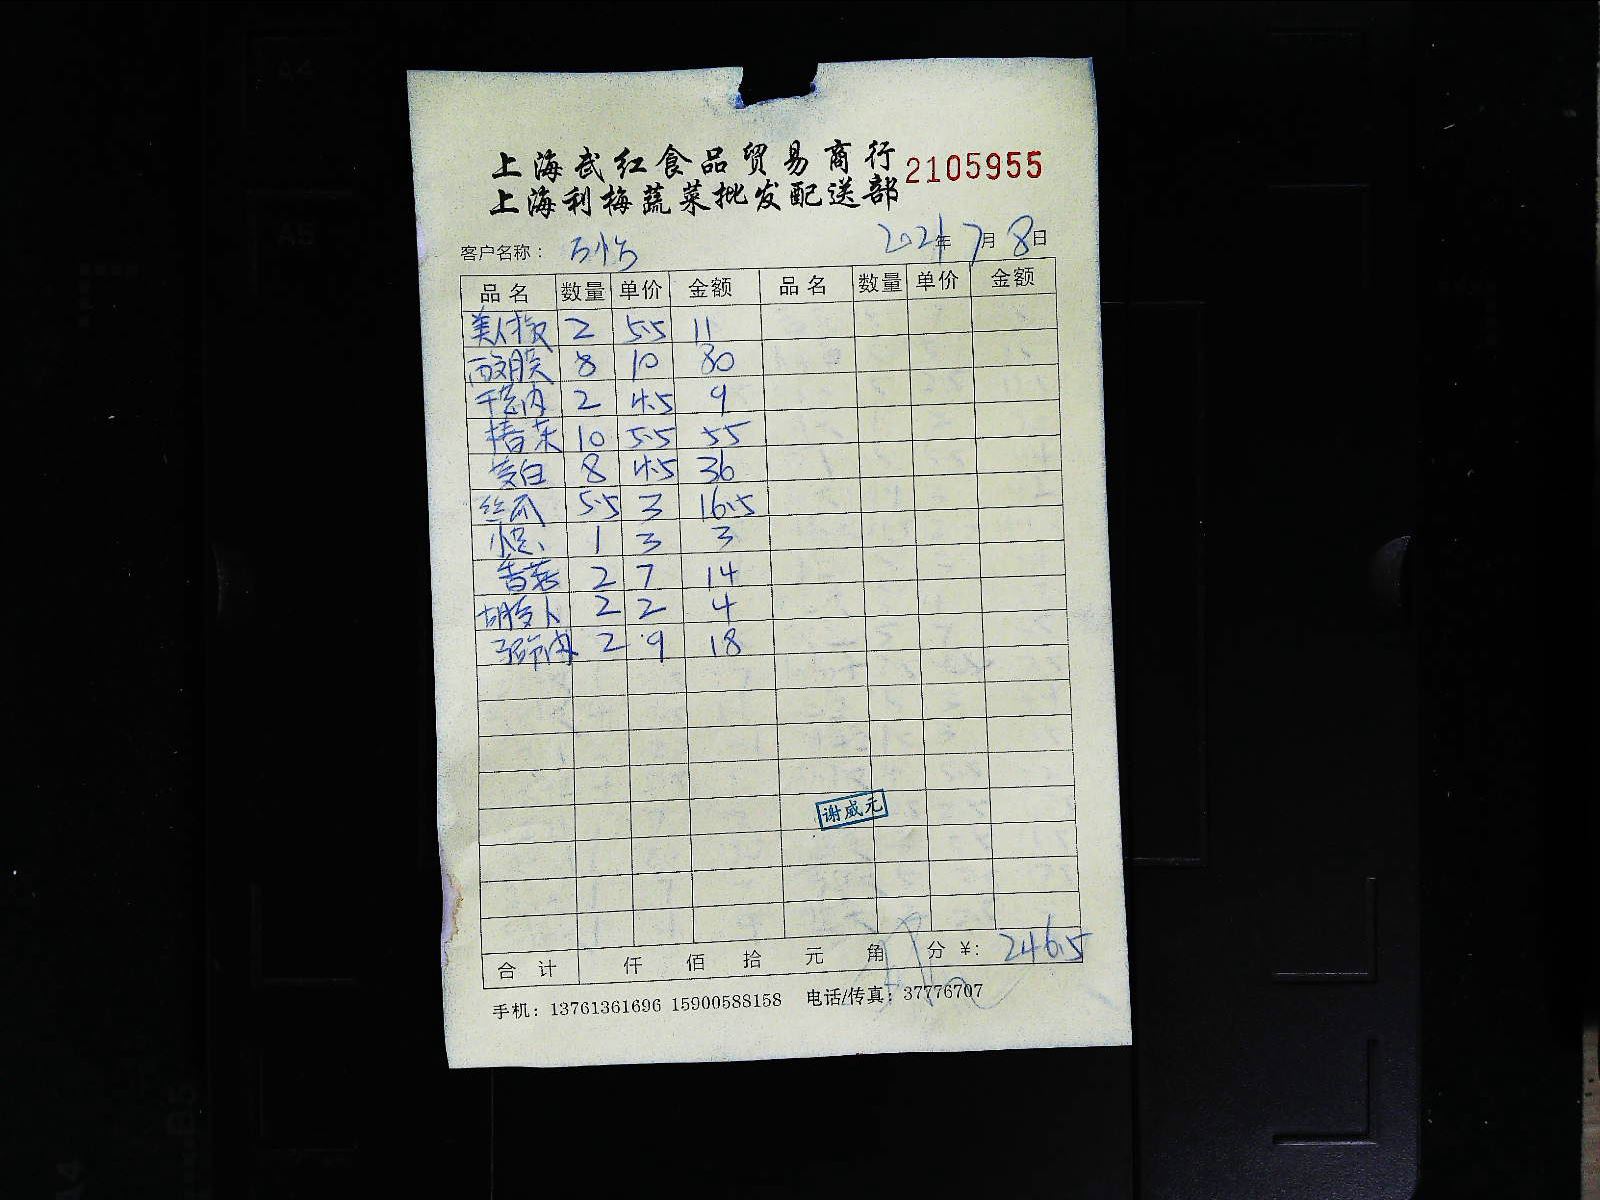 上海武红食品贸易商行
2105955
上海利梅蔬菜批发配送部
客户名称： 2021年7月8日
品名 数量 单价 金额 品名 数量 单价 金额
美人椒 2 5.5 11
8 10 80
2 4.5 9
10 5.5 55
茭白 8 4.5 36
丝瓜 5.5 3 16.5
小葱 1 3 3
香菇 2 7 14
胡萝卜 2 2 4
2 9 18
谢威元
合计 仟 佰 拾 元 角 分 ¥: 246.5
手机：13761361696 15900588158 电话/传真：37776707